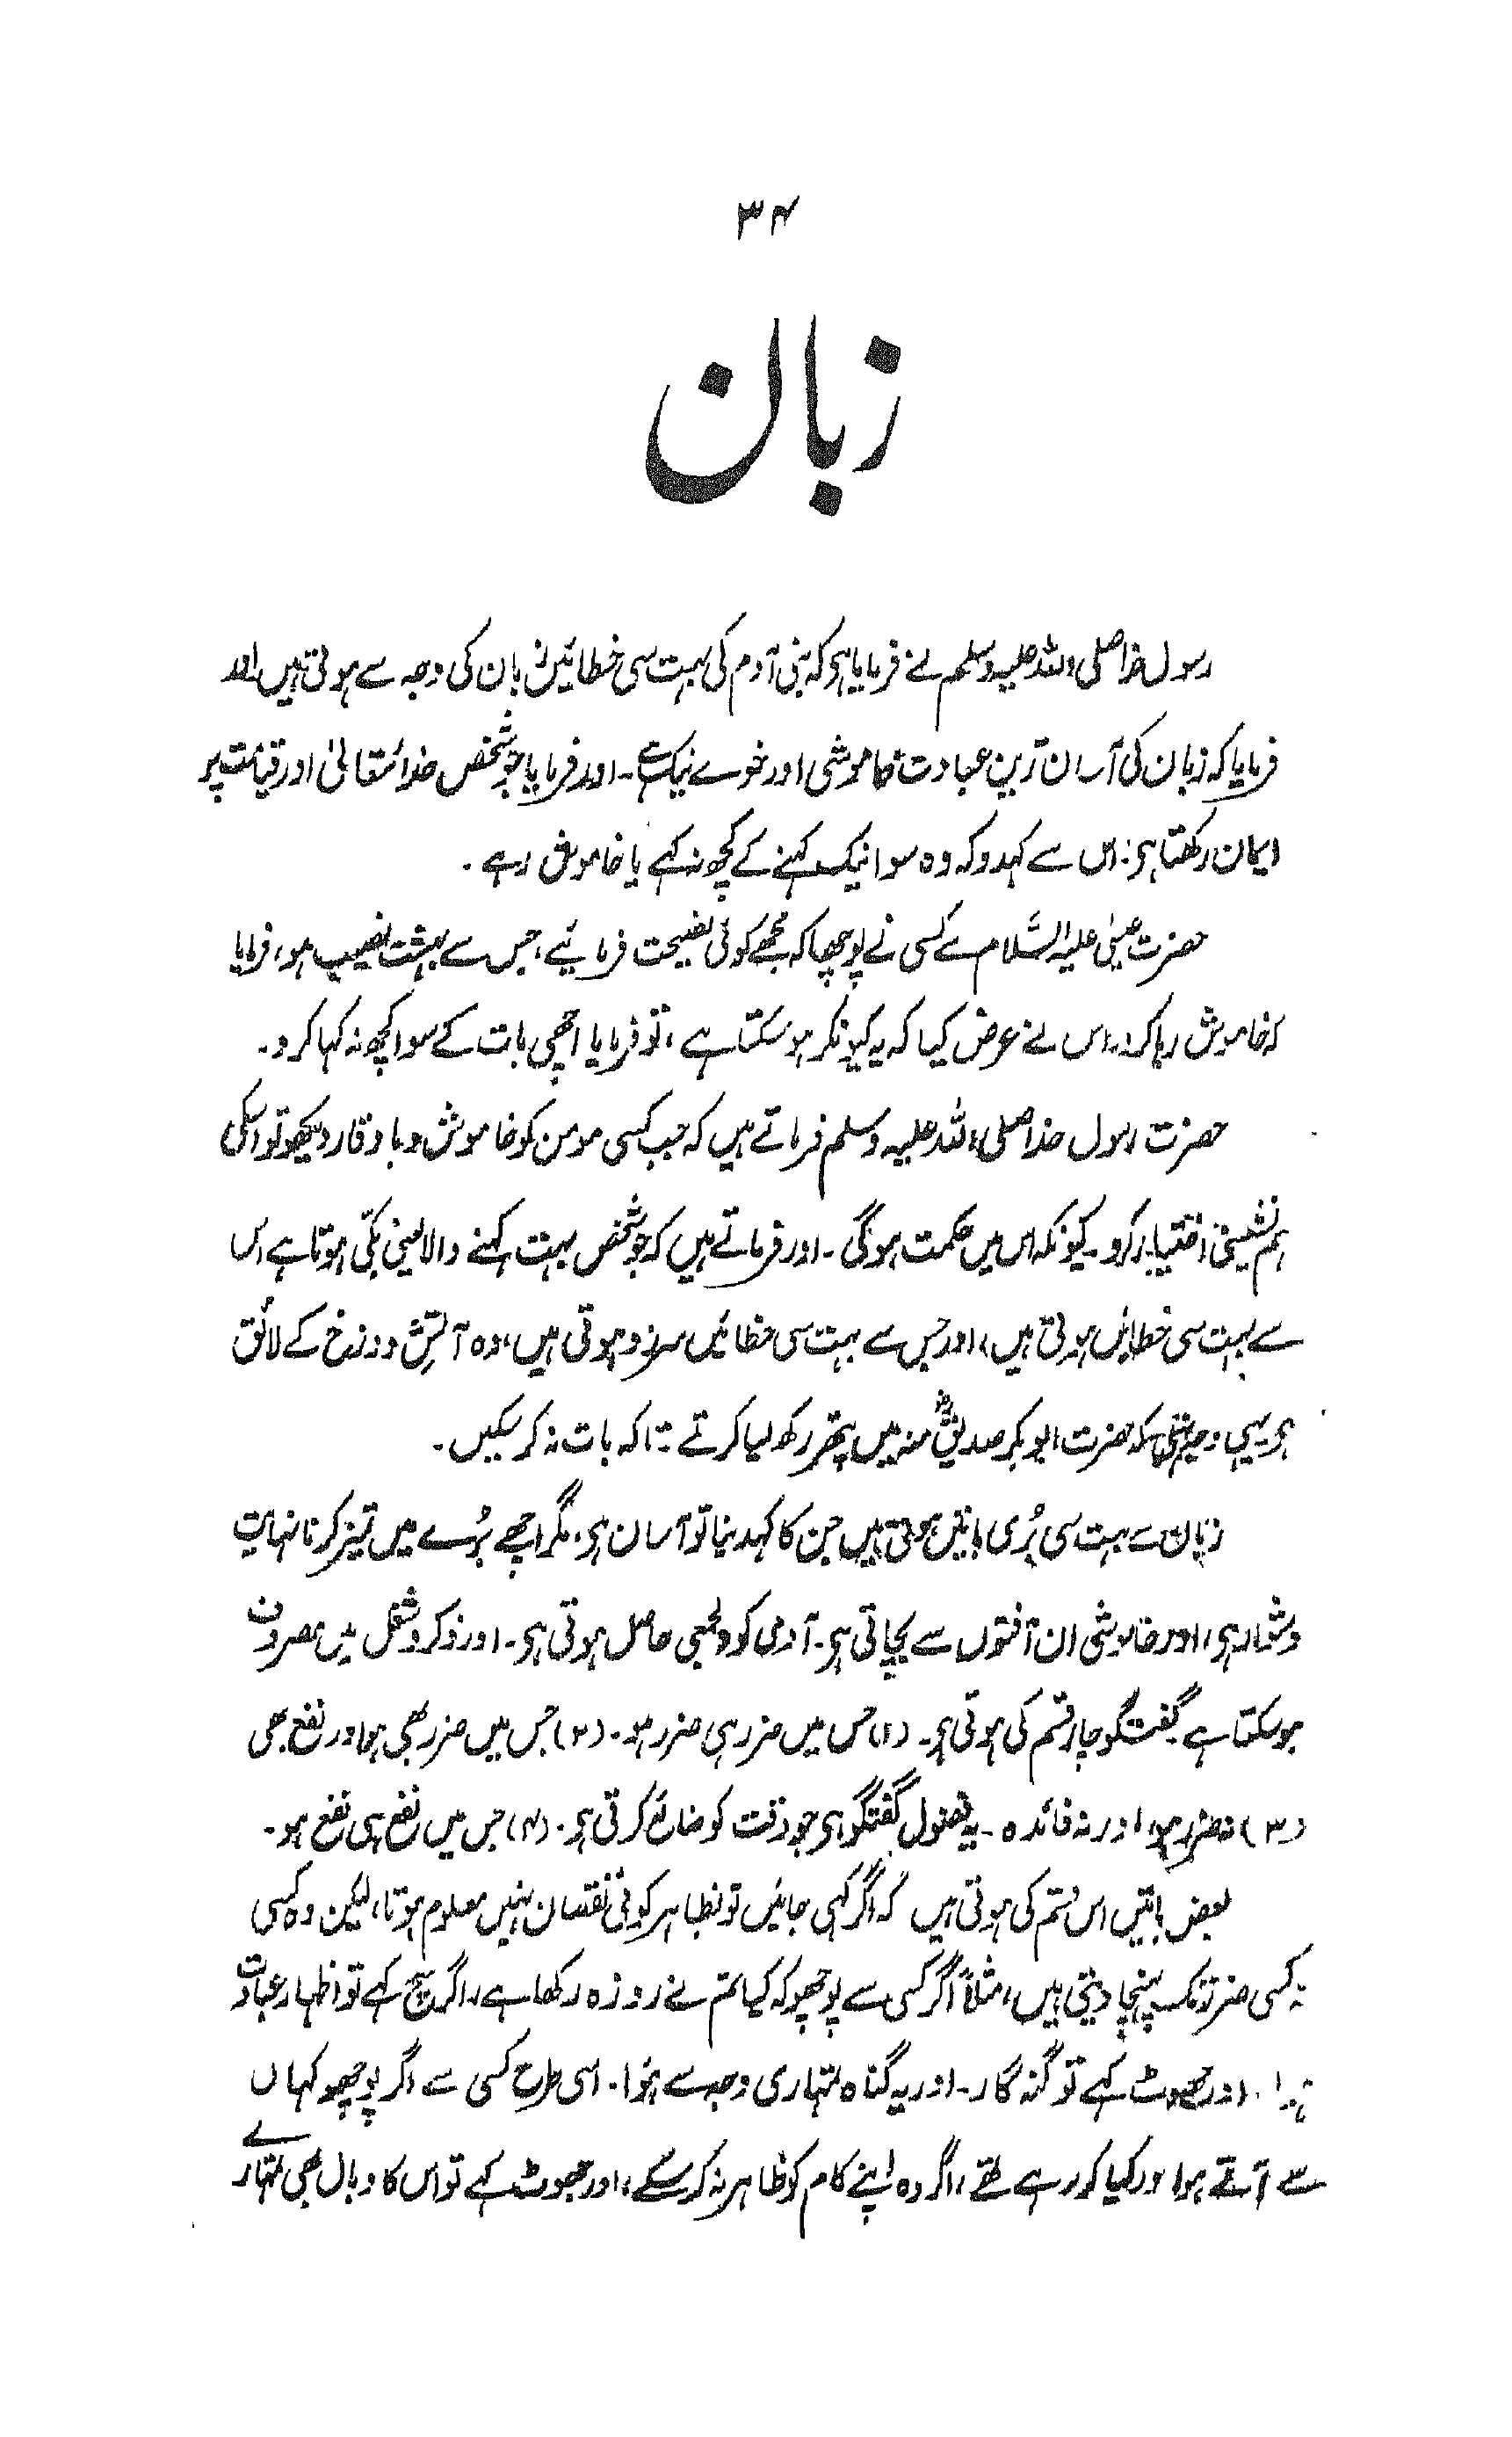 ۳۴
زبان
رسول خدا صلی اللہ علیہ وسلم نے فرمایا ہی کہ بنی آدم کی بہت سی خطائیں زبان کی وجہ سے ہوتی ہیں اور
فرمایا کہ زبان کی آسان ترین عبادت خاموشی اور خوے نیک ہے۔ اور فرمایا جو شخص خدائتعالیٰ اور قیامت پر
ایمان رکھتا ہی، اس سے کہدو کہ وہ سوا نیک کہنے کے کچھ نہ کہے یا خاموش رہے۔
حضرت عیسیٰ علیہ السَّلام سے کسی نے پوچھا کہ مجھے کوئی نصیحت فرمائیے، جس سے بہشت نصیب ہو، فرمایا
کہ خاموش رہا کرو، اس نے عرض کیا کہ یہ کیونکر ہو سکتا ہے، تو فرمایا اچھی بات کے سوا کچھ نہ کہا کرو۔
حضرت رسول خدا صلی اللہ علیہ وسلم فرماتے ہیں کہ جب کسی مومن کو خاموش و با وقار دیکھو تو اسکی
ہم نشینی اختیار کرو۔ کیونکہ اس میں حکمت ہوگی۔ اور فرماتے ہیں کہ جو شخص بہت کہنے والا یعنی بکّی ہوتا ہے اس
سے بہت سی خطائیں ہوتی ہیں، اور جس سے بہت سی خطائیں سرزد ہوتی ہیں، وہ آتشِ دوزخ کے لائق
ہی یہی وجہ تھی کہ حضرت ابوبکر صدیقؓ منہ میں پتھر رکھ لیا کرتے تا کہ بات نہ کر سکیں۔
زبان سے بہت سی بُری باتیں ہوتی ہیں جن کا کہدینا تو آسان ہی، مگر اچھے بُرے میں تمیز کرنا نہایت
دشوار ہی، اور خاموشی ان آفتوں سے بچاتی ہی۔ آدمی کو دلجمعی حاصل ہوتی ہی۔ اور ذکر و شغل میں مصروف
ہو سکتا ہے گفتگو چار قسم کی ہوتی ہی۔ (۱) جس میں ضرر ہی ضرر ہو۔ (۲) جس میں ضرر بھی ہو اور نفع بھی
(۳) نہ ضرر ہو اور نہ فائدہ۔ یہ فضول گفتگو ہی جو وقت کو ضائع کرتی ہی۔ (۴) جس میں نفع ہی نفع ہو۔
بعض باتیں اس قسم کی ہوتی ہیں کہ اگر کہی جائیں تو بظاہر کوئی نقصان نہیں معلوم ہوتا، لیکن وہ کسی
نہ کسی ضرر تک پہنچا دیتی ہیں، مثلاً اگر کسی سے پوچھو کہ کیا تم نے روزہ رکھا ہے، اگر سچ کہے تو اظہار عبادت
ہوا۔ اور جھوٹ کہے تو گنہ گار۔ اور یہ گناہ تمہاری وجہ سے ہُوا۔ اسی طرح کسی سے اگر پوچھو کہاں
سے آتے ہو اور کیا کر رہے تھے، اگر وہ اپنے کام کو ظاہر نہ کرسکے، اور جھوٹ کہے تو اس کا وبال بھی تمہارے